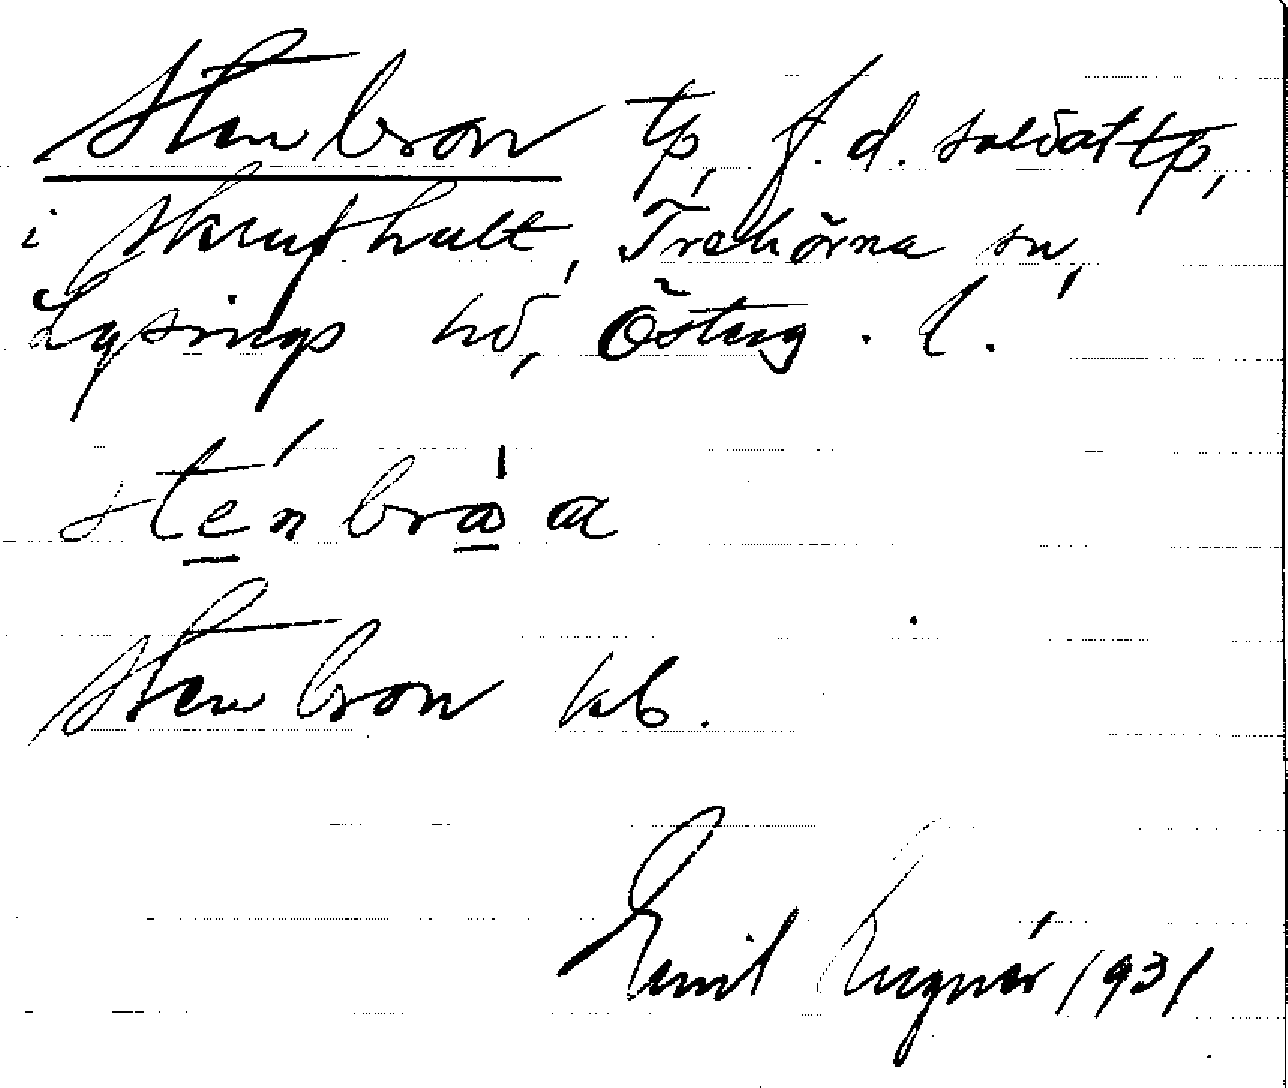 Stenbron tp, f.d. soldattp,
i Skrufhult, Trehörna sn,
Lysings hd, Österg. l.
sténbrǻa
Stenbron kb.
Emil 1931